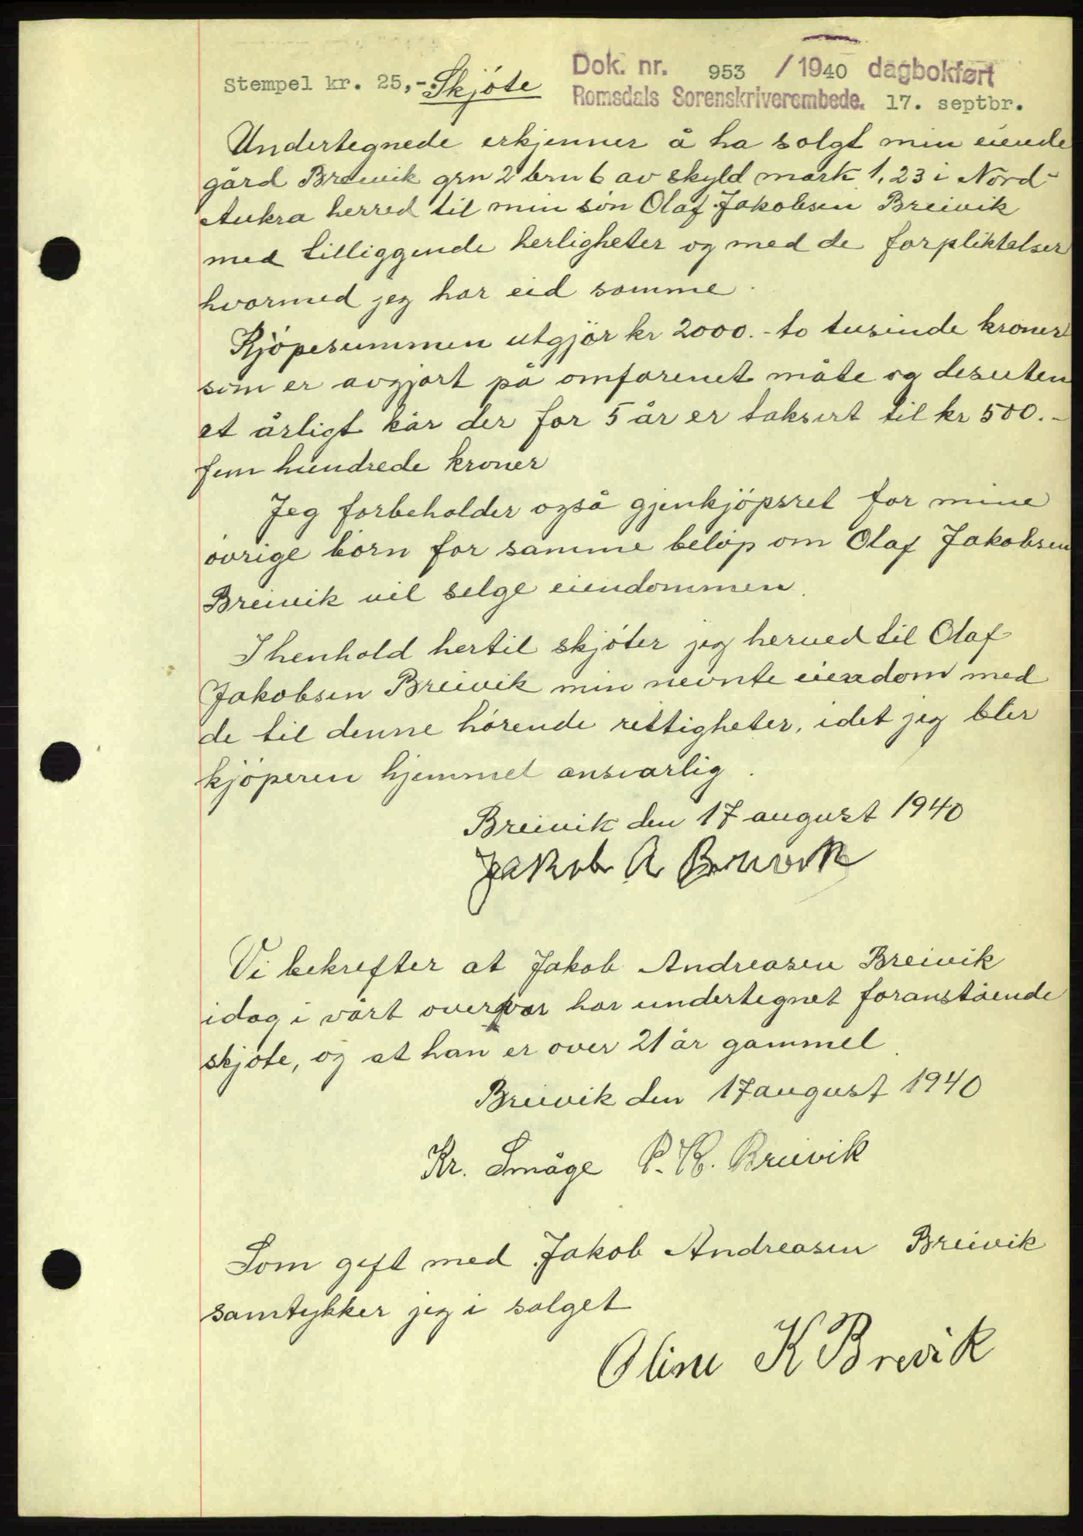 Stempel kr. 25,- Skjöte
Dok. nr. 953 / 1940 dagbokført
Romsdals Sorenskriverembede. 17. septbr.
Undertegnede erkjenner å ha solgt min eiende
gård Breivik grn 2 brn 6 av skyld mark 1,23 i Nord-
Aukra herred til min sön Olaf Jakobsen Breivik
med tilliggende herligheter og med de forpliktelser
hvormed jeg har eid samme.
Kjöpesummen utgjör kr 2000.- to tusinde kroner
som er avgjort på omforenet måte og desuten
et årligt kår der for 5 år er taksert til kr 500.-
fem hundrede kroner
Jeg forbeholder også gjenkjöpsret for mine
övrige börn for samme belöp om Olaf Jakobsen
Breivik vil selge eiendommen.
I henhold hertil skjöter jeg herved til Olaf
Jakobsen Breivik min nevnte eiendom med
de til denne hörende rettigheter, idet jeg bler
kjöperen hjemmel ansvarlig.
Breivik den 17 august 1940
Jakob A Breivik
Vi bekrefter at Jakob Andreasen Breivik
idag i vårt overvær har undertegnet foranstående
skjöte, og at han er over 21 år gammel.
Breivik den 17 august 1940
Kr. Småge P. K. Breivik
Som gift med Jakob Andreasen Breivik
samtykker jeg i salget
Oline K Brevik